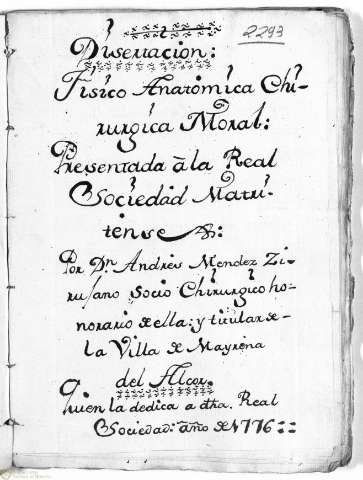 2293
Disertacion:
Fisico Anatomica Chi-
rurgica Moral:
Presentada â la Real
Sociedad Matri-
tense &:
Por Dn. Andrés Mendez Zi-
rujano Socio Chirurgico ho-
norario de ella: y titular de
la Villa de Mayrena
del Alcor.
Quien la dedica a dha. Real
Sociedad: año de 1776::